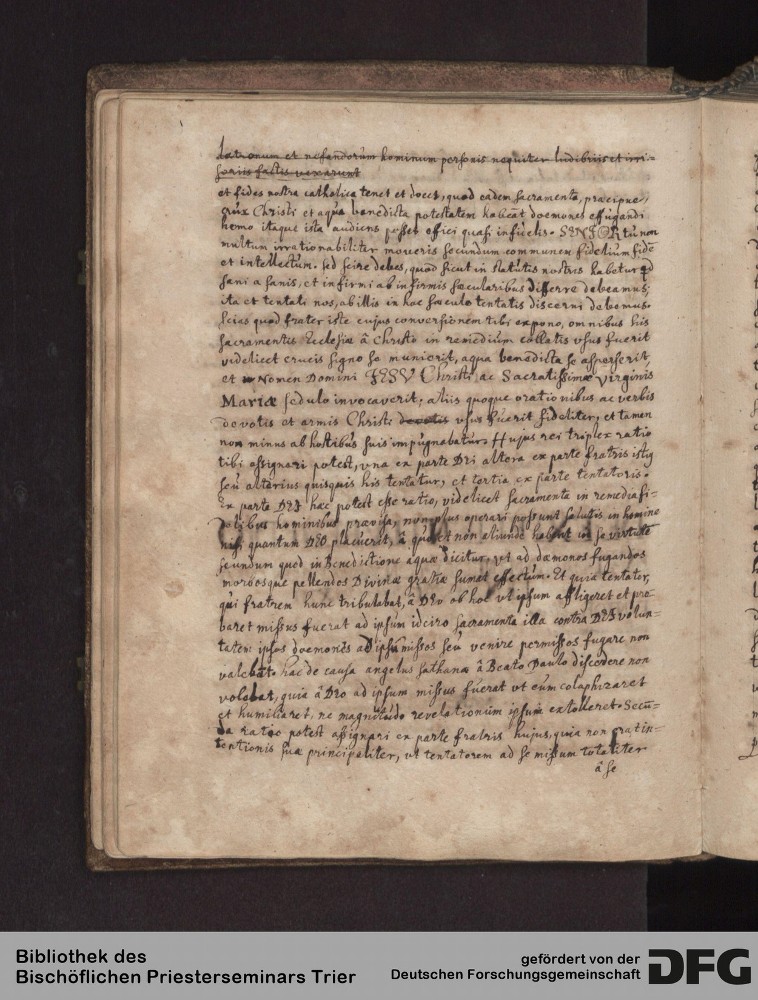 latronum et nefandorum hominum personis nequiter ludibriis et irri=
soriis factis vexarunt
et fides nostra catholica tenet et docet, quod eadem sacramenta, praecipue
crux Christi et aqua benedicta potestatem habeāt doemones effugandi
hemo itaque ista audiens posset effici quasi infidelis. SENIOR tu non
multum irrationabiliter moveris secundum communem fidelium fidē
et intellectum. sed scire debes, quod sicut in statutis nostris habetur qd
sani a sanis, et infirmi ab infirmis saecularibus differre debeamus;
ita et tentati nos, ab illis in hoc saeculo tentatis discerni debemus.
scias quod frater iste cujus conversionem tibi expono, omnibus his
sacramentis Ecclesiae â Christo in remedium collatis usus fuerit
videlicet crucis signo se munierit, aqua benedicta se asperserit,
et Nomen Domini JESU Christi ac Sacratissimae Virginis
Mariae sedulo invocaverit, aliis quoque orationibus ac verbis
devotis et armis Christi devotis usus fuerit fideliter, et tamen
non minus ab hostibus suis impugnabatur. Hujus rei triplex ratio
tibi assignari potest, una ex parte DEI altera ex parte fratris istig
seu alterius quisquis his tentatur, et tertia ex parte tentatoris.
Ex parte DEI haec potest esse ratio, videlicet sacramenta in remedia fi=
delibus hominibus provisa, non plus operari possunt salutis in homine
nisi quantum DEO placuerit, â quo et non aliunde habent in se virtutē
secundum quod in Benedictione aquae dicitur, ut ad daemones fugandos
morbosque pellendos Divinae gratiae sumat effectum. Et quia tentator,
qui fratrem hunc tribulabat, â DEO ob hoc ut ipsum affligeret et pro
baret missus fuerat ad ipsum idcirco sacramenta illa contra DEI volun=
tatem ipsos doemones ad ipsum missos seu venire permissos fugare non
valebāt. hac de causa angelus sathanae â Beato Paulo discedere non
volebat, quia â DEO ad ipsum missus fuerat ut eum colaphizaret
et humiliaret, ne magnitudo revelationum ipsum extolleret. Secū=
da ratio potest assignari ex parte fratris hujus, quia non erat in=
tentionis suae principaliter, ut tentatorem ad se missum totaliter
â se
Bibliothek des
Bischöflichen Priesterseminars Trier
gefördert von der
Deutschen Forschungsgemeinschaft
DFG